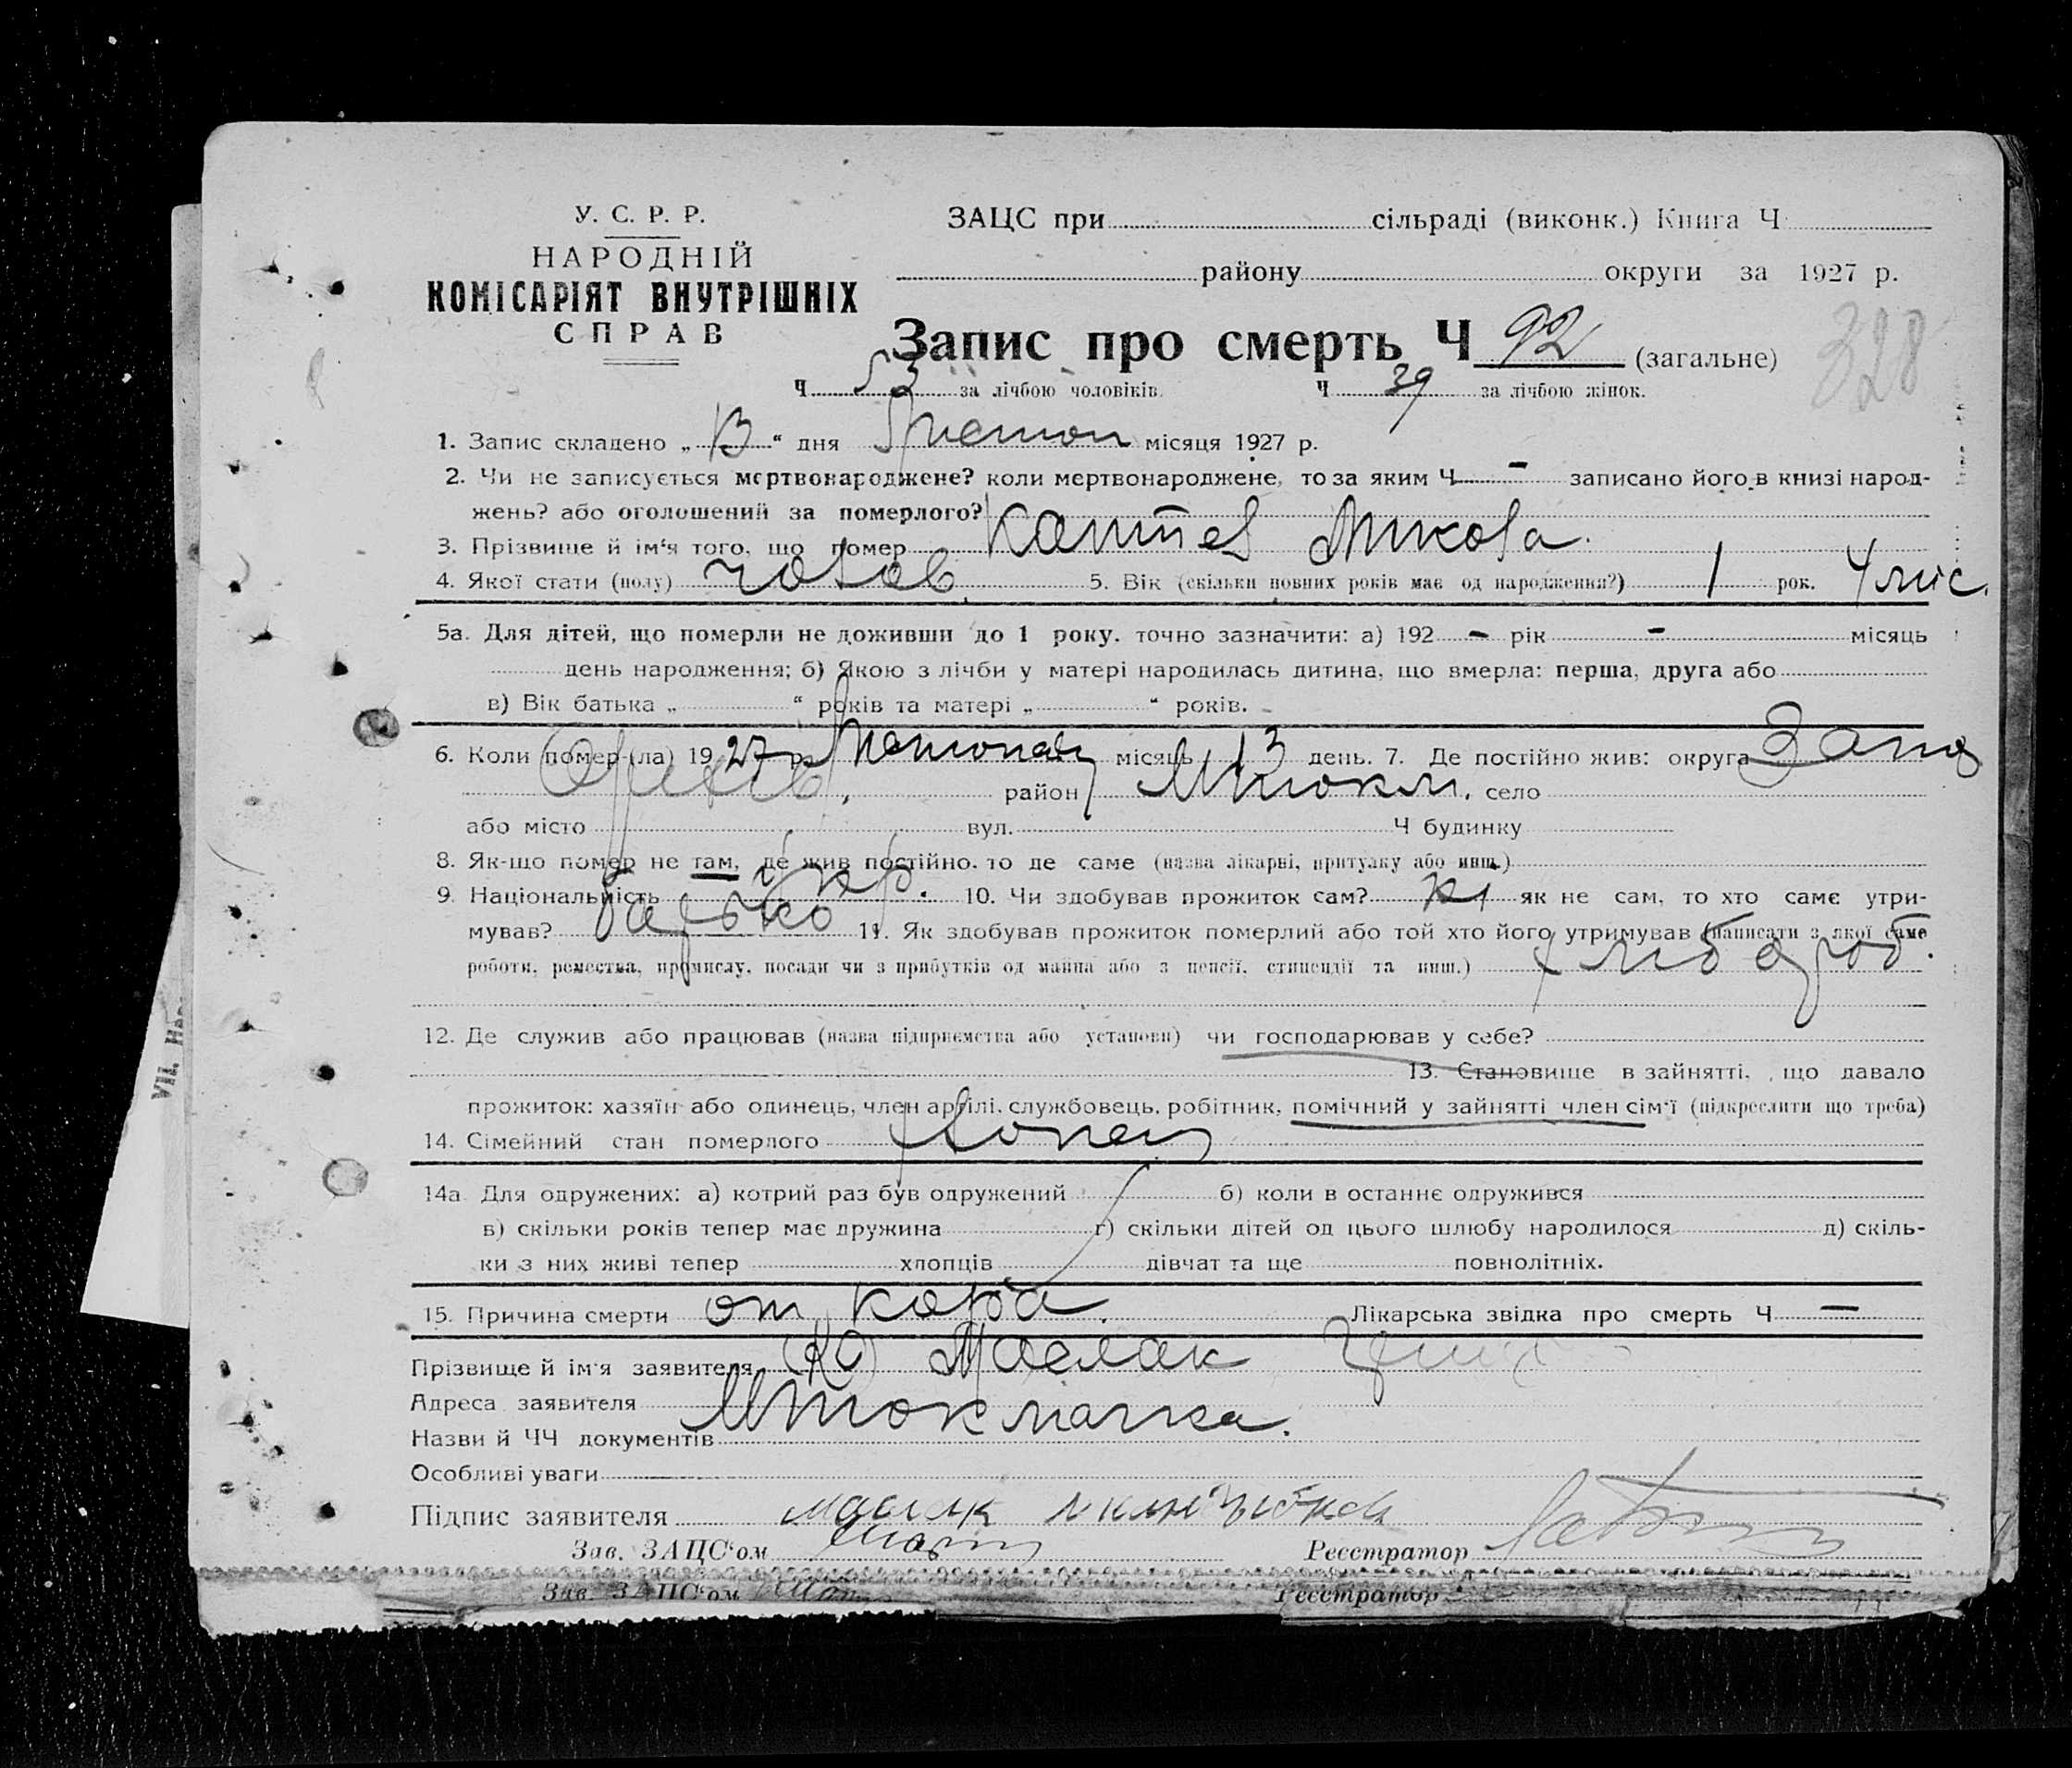 У. С. Р. Р.
НАРОДНІЙ
КОМІСАРІЯТ ВНУТРІШНІХ
СПРАВ
ЗАЦС при сільраді (виконк.) Книга Ч
району округи за 1927 р.
Запис про смерть Ч 92 (загальне)
328
Ч 53 за лічбою чоловіків. Ч 39 за лічбою жінок.
1. Запис складено „ 13 “ дня місяця 1927 р.
2. Чи не записується мертвонароджене? коли мертвонароджене, то за яким Ч - записано його в книзі народ-
жень? або оголошений за померлого?
3. Прізвище й ім‘я того, що помер Микола.
4. Якої стати (полу) чолов 5. Вік (скільки повних років має од народження?) 1 рок. 4 міс.
5а. Для дітей, що померли не доживши до 1 року. точно зазначити: а) 192 - рік - місяць
день народження; б) Якою з лічби у матері народилась дитина, що вмерла: перша, друга або
в) Вік батька „ “ років та матері „ “ років.
6. Коли помер (ла) 1927 р. місяць 13 день. 7. Де постійно жив: округа Запор
Оріхів, район М Токм. село
або місто вул. Ч будинку
8. Як-що помер не там, де жив постійно. то де саме (назва лікарні, притулку або инш.)
9. Національність Укр. 10. Чи здобував прожиток сам? Ні як не сам, то хто саме утри-
мував? батько 11. Як здобував прожиток померлий або той хто його утримував (написати з якої саме
роботи, ремества, промислу, посади чи з прибутків од майна або з пенсії, стипендії та инш.) хлібороб.
12. Де служив або працював (назва підприємства або установи) чи господарював у себе?
13. Становище в зайнятті, що давало
прожиток: хазяїн або одинець, член артілі, службовець, робітник, помічний у зайнятті член сім‘ї (підкреслити що треба)
14. Сімейний стан померлого хлопец
14а Для одружених: а) котрий раз був одружений б) коли в останнє одружився
в) скільки років тепер має дружина г) скільки дітей од цього шлюбу народилося д) скіль-
ки з них живі тепер хлопців дівчат та ще повнолітніх.
15. Причина смерти от кору. Лікарська звідка про смерть Ч —
Прізвище й ім‘я заявителя Маслак
Адреса заявителя М Токмачка.
Назви й ЧЧ документів
Особливі уваги
Підпис заявителя маслак
Зав. ЗАЦС‘ом Реєстратор
Зав. ЗАЦС‘ом Реєстратор